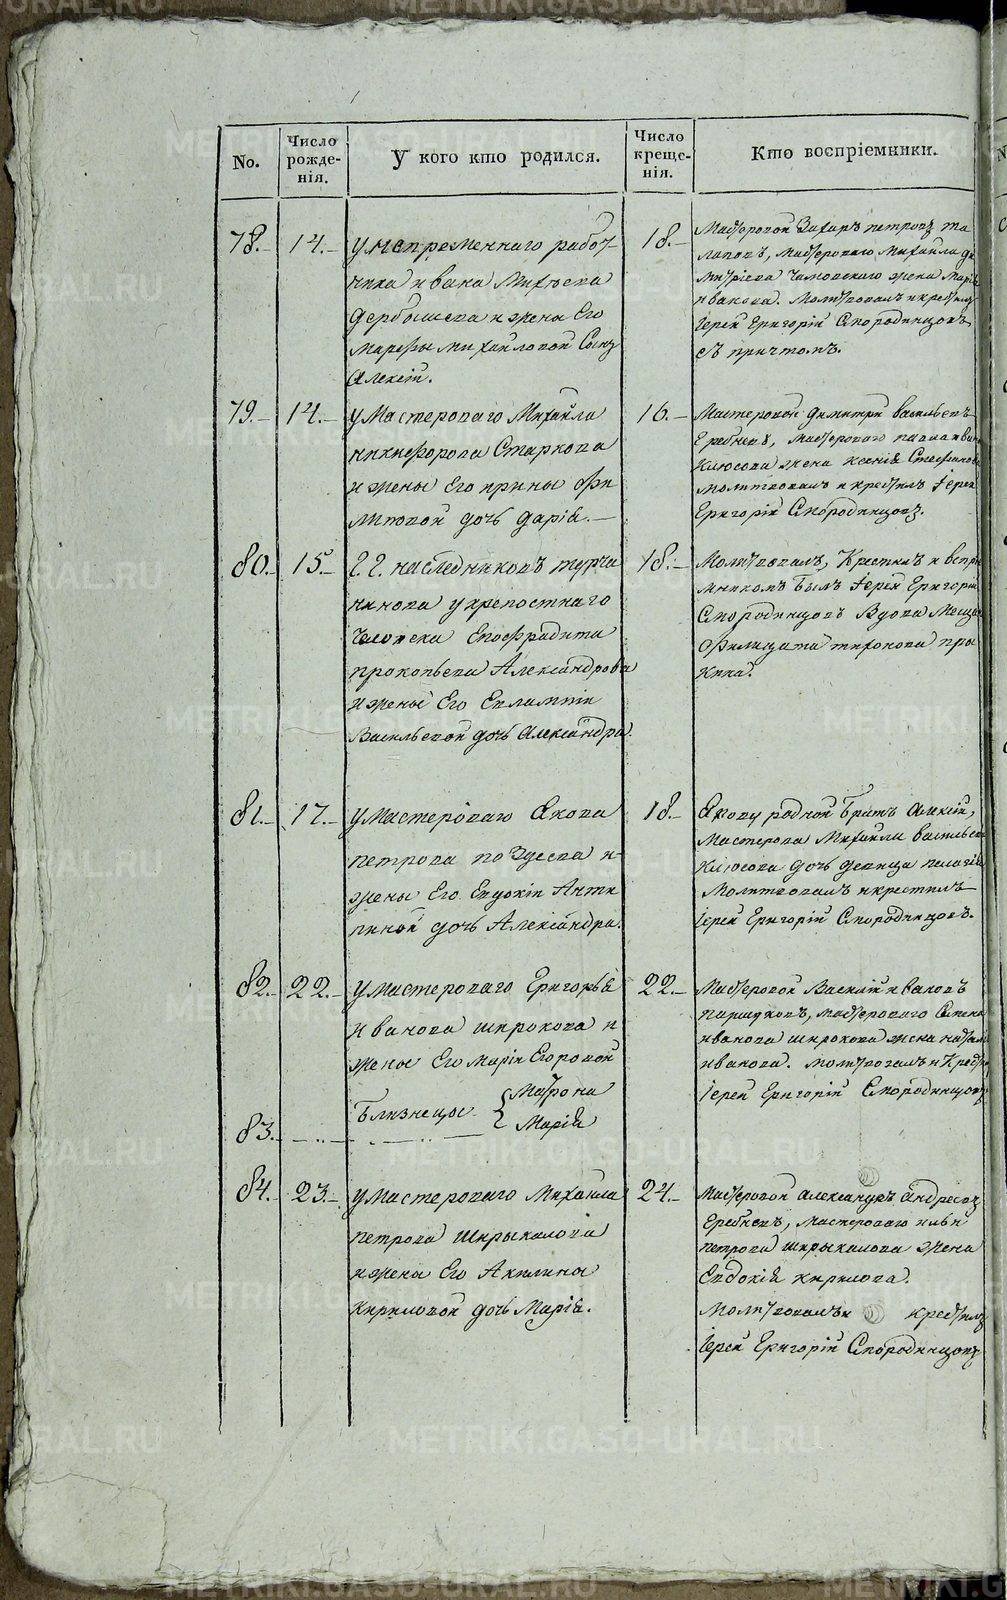 No.
Число рожденія.
У кого кто родился.
Число крещенія.
Кто воспріемники.
78.
14.
у непременнаго работ
ника Ивана
Дербышева и жены Его
Марфы Михайловой Сынъ
Алексій.
18.
Мастеровой Захаръ петровъ
мастероваго Михайла
жена Марія
иванова. Молитвовалъ и крестилъ
Іерей Григорій Смородинцовъ
съ причтомъ.
79.
14.
у Мастероваго Михайла
никифорова Старкова
и жены Его ирины Фи
липовой дочь Дарія.
16.
Мастеровой Димитрій васильевъ
Гребневъ, Мастероваго
Клюсова жена Ксенія Стефанова
Молитвовалъ и крестилъ Іерей
Григорій Смородинцовъ.
80.
15.
Г. Г. наследниковъ турча
нинова у крепостнаго
Человека Епафродита
прокопьева Александрова
и жены Его Евлампіи
Васильевой дочь Александра.
18.
Молитвовалъ, Крестилъ и воспріе
мникомъ былъ Іерей Григорій
Смородинцовъ Вдова
Филицата тихонова
81.
17.
у Мастероваго Якова
петрова поздеева и
жены Его Евдокіи Анти
пиной дочь Александра.
18.
Якову родной братъ Алексій,
Мастерова Михайла васильева
Клюсова дочь девица пелагія
Молитвовалъ и крестилъ
Іерей Григорій Смородинцовъ.
82.
22.
у мастероваго Григорья
иванова широкова и
жены Его Маріи Егоровой
Близнецы { Матрона
Марія
22.
Мастеровой Василій ивановъ
паршуковъ, мастероваго Симена
иванова широкова жена
иванова. Молитвовалъ и Крестилъ
Іерей Григорій Смородинцовъ
83.
84.
23.
у мастероваго Михайла
петрова Шкрыкалова
и жены Его Акилины
Кириловой дочь Марія.
24.
Мастеровой Александръ Андреевъ
Гребневъ, Мастероваго ильи
петрова шкрыкалова жена
Евдокія кирилова.
Молитвовалъ и крестилъ
Іерей Григорій Смородинцовъ
METRIKI.GASO-URAL.RU